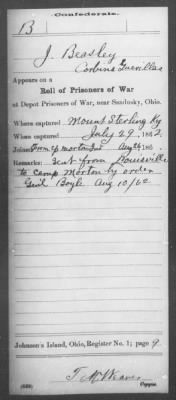 Confederate.
B
J. Beasley
Corbins Guerillas
Appears on a
Roll of Prisoners of War
at Depot Prisoners of War, near Sandusky, Ohio.
Where captured Mount Sterling Ky
When captured July 29, 1862
Joined From Cp morton Ind Aug 186 .
Remarks: Sent from Louisville
to Camp Morton by order
Genl Boyle Aug 10/62
Johnson's Island, Ohio, Register No. 1; page 9.
T. M. Weaver
Copyist.